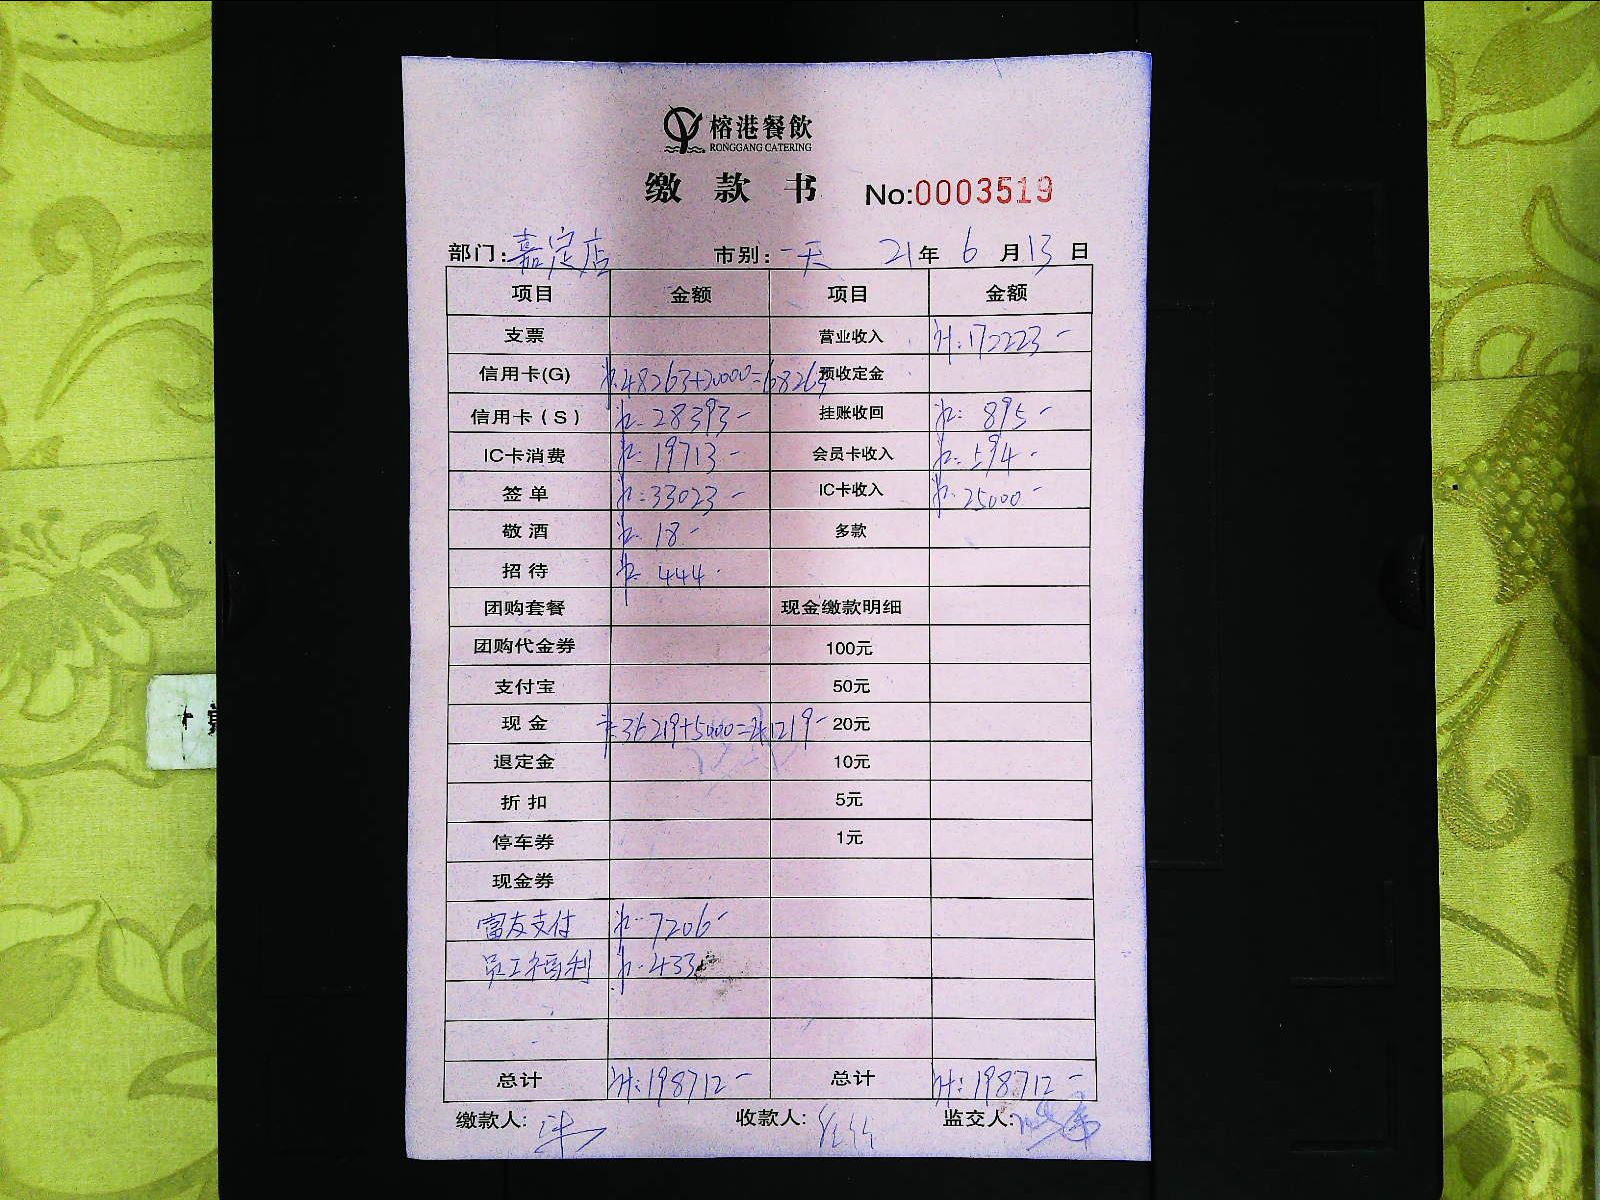 榕港餐飲
RONGGANG CATERING
缴款书 No:0003519
部门:嘉定店 市别:一天 21年6月13日
项目 金额 项目 金额
支票 营业收入 计:172223-
信用卡(G) 48263+20000=68263 预收定金
信用卡(S) 28393- 挂账收回 895-
IC卡消费 19713- 会员卡收入 594-
签单 33023- IC卡收入 25000-
敬酒 18- 多款
招待 444-
团购套餐 现金缴款明细
团购代金券 100元
支付宝 50元
现金 36219+5000=41219- 20元
退定金 10元
折扣 5元
停车券 1元
现金券
富友支付 7206-
员工福利 433
总计 计:198712- 总计 计:198712-
缴款人: 收款人: 监交人: